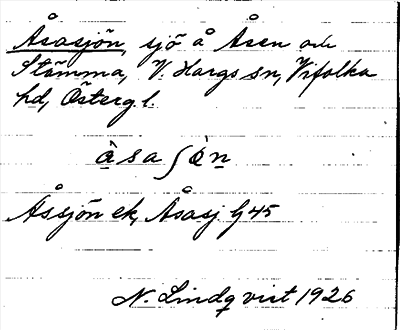 Åsasjön, sjö å Åsen och
Stämma, V. Hargs sn, Vifolka
hd, Österg. l.
å̀saʃø̀n
Åssjön ek, Åsasj G 45
N. Lindqvist 1926